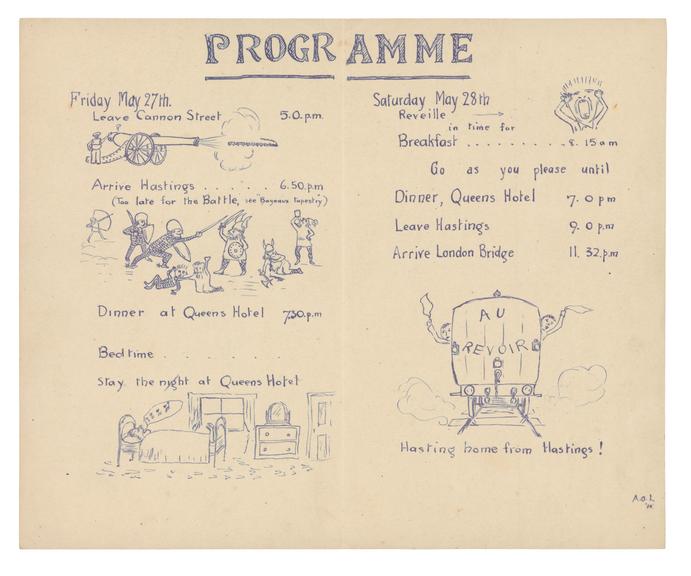 PROGRAMME
Friday May 27th.
Leave Cannon Street 5.0.p.m.
Arrive Hastings . . . . . . 6.50.p.m
(Too late for the Battle, see "Bayeaux Tapestry")
Dinner at Queens Hotel 7.30.p.m
Bedtime . . . . . .
Stay the night at Queens Hotel
ZZZ
Saturday May 28th
Reveille
in time for
Breakfast . . . . . . . . . . 8. 15 a m
Go as you please until
Dinner, Queens Hotel 7. 0 p m
Leave Hastings 9. 0 p.m
Arrive London Bridge 11. 32. p.m
AU
REVOIR
Hasting home from Hastings !